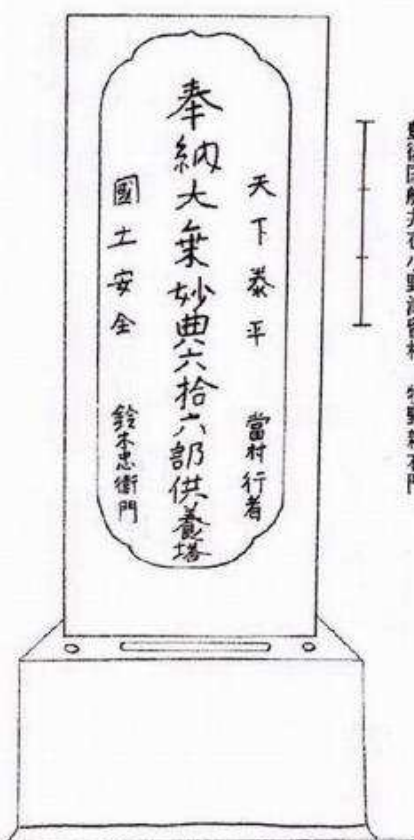 天下泰平 當村行者
奉納大乗妙典六拾六部供養塔
國土安全 鈴木忠衛門